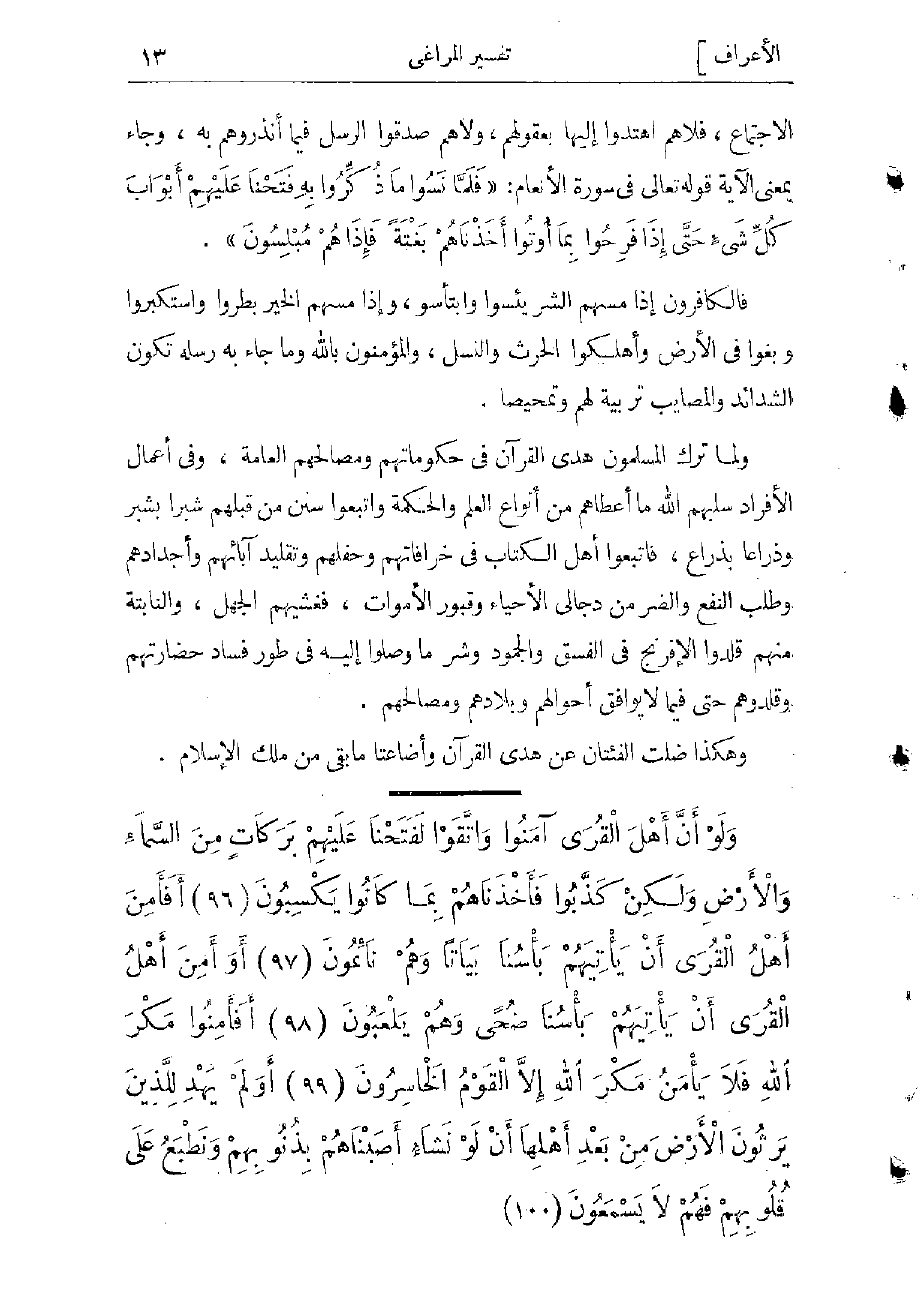 الأعراف ] تفسير المراغى ١٣
الاجتماع ، فلاهم اهتدوا إليها بعقولهم ، ولاهم صدقوا الرسل فيما أنذروهم به ، وجاء
بمعنى الآية قوله تعالى فى سورة الأنعام : « فَلَمَّا نَسُوا مَا ذُكِّرُوا بِهِ فَتَحْنَا عَلَيْهِمْ أَبْوَابَ
كُلِّ شَىْءٍ حَتَّى إِذَا فَرِحُوا بِمَا أُوتُوا أَخَذْنَاهُمْ بَغْتَةً فَإِذَا هُمْ مُبْلِسُونَ » .
فالكافرون إذا مسهم الشر يئسوا وابتأسو ، وإذا مسهم الخير بطروا واستكبروا
وبغوا فى الأرض وأهلكوا الحرث والنسل ، والمؤمنون بالله وما جاء به رسله تكون
الشدائد والمصايب تربية لهم وتمحيصا .
ولما ترك المسلمون هدى القرآن فى حكوماتهم ومصالحهم العامة ، وفى أعمال
الأفراد سلبهم الله ما أعطاهم من أنواع العلم والحكمة واتبعوا سنن من قبلهم شبرا بشبر
وذراعا بذراع ، فاتبعوا أهل الكتاب فى خرافاتهم وحفلهم وتقليد آبائهم وأجدادهم
وطلب النفع والضر من دجالى الأحياء وقبور الأموات ، فغشيهم الجهل ، والنابتة
منهم قلدوا الإفرنج فى الفسق والجمود وشر ما وصلوا إليه فى طور فساد حضارتهم
وقلدوهم حتى فيما لايوافق أحوالهم وبلادهم ومصالحهم .
وهكذا ضلت الفئتان عن هدى القرآن وأضاعتا مابقى من ملك الإسلام .
وَلَوْ أَنَّ أَهْلَ الْقُرَى آمَنُوا وَاتَّقَوْا لَفَتَحْنَا عَلَيْهِمْ بَرَكَاتٍ مِنَ السَّمَاءِ
وَالْأَرْضِ وَلَكِنْ كَذَّبُوا فَأَخَذْنَاهُمْ بِمَا كَانُوا يَكْسِبُونَ (٩٦) أَفَأَمِنَ
أَهْلُ الْقُرَى أَنْ يَأْتِيَهُمْ بَأْسُنَا بَيَاتًا وَهُمْ نَائِمُونَ (٩٧) أَوَ أَمِنَ أَهْلُ
الْقُرَى أَنْ يَأْتِيَهُمْ بَأْسُنَا ضُحًى وَهُمْ يَلْعَبُونَ (٩٨) أَفَأَمِنُوا مَكْرَ
اللهِ فَلَا يَأْمَنُ مَكْرَ اللهِ إِلاَّ الْقَوْمُ الْخَاسِرُونَ (٩٩) أَوَلَمْ يَهْدِ لِلَّذِينَ
يَرِثُونَ الْأَرْضَ مِنْ بَعْدِ أَهْلِهَا أَنْ لَوْ نَشَاءُ أَصَبْنَاهُمْ بِذُنُوبِهِمْ وَنَطْبَعُ عَلَى
قُلُوبِهِمْ فَهُمْ لَا يَسْمَعُونَ (١٠٠)